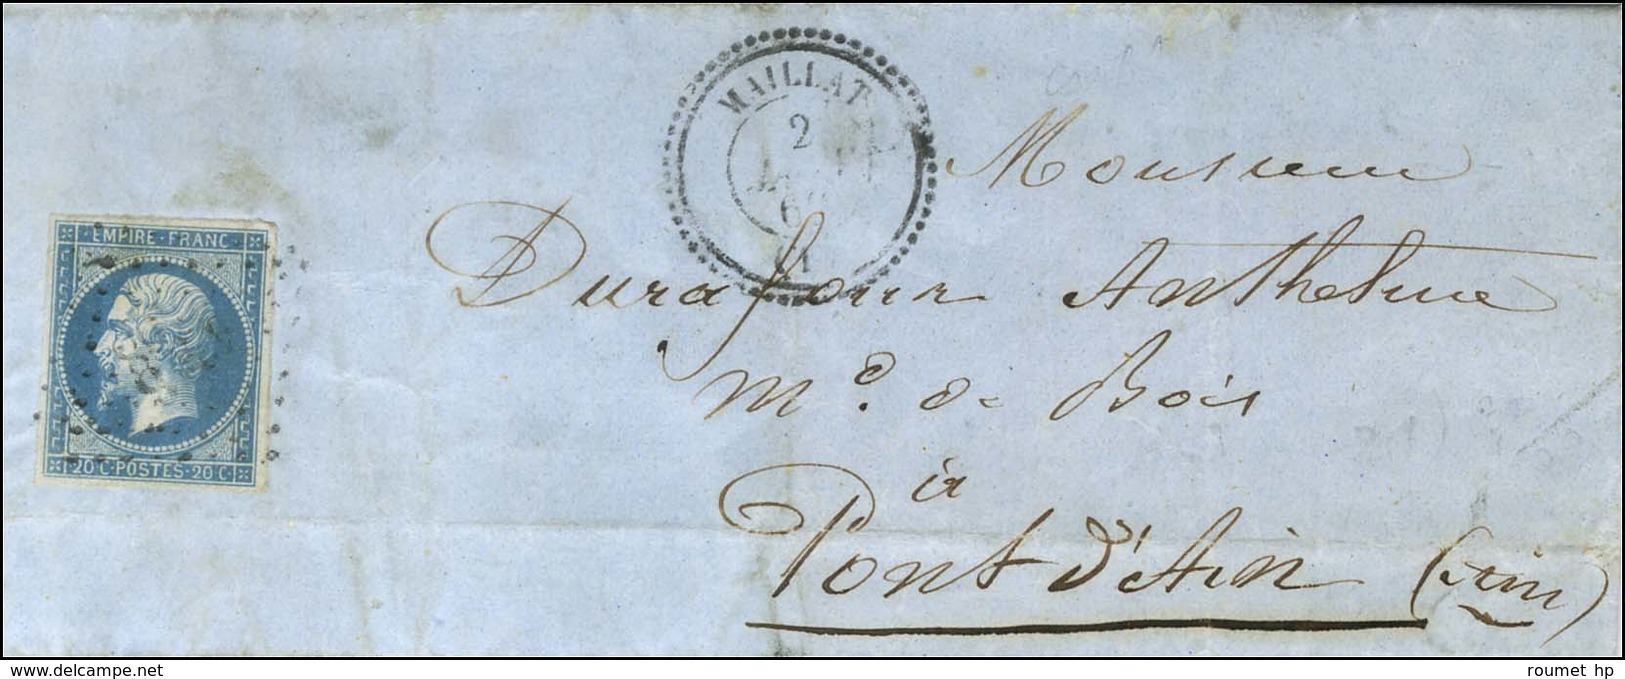 MAILLAT
2
Monsieur
EMPIRE FRANC
Durafour Anthelme
Md. de Bois
à
20 C POSTES 20 C
Pont d'Ain (Ain)
www.delcampe.net
roumet hp